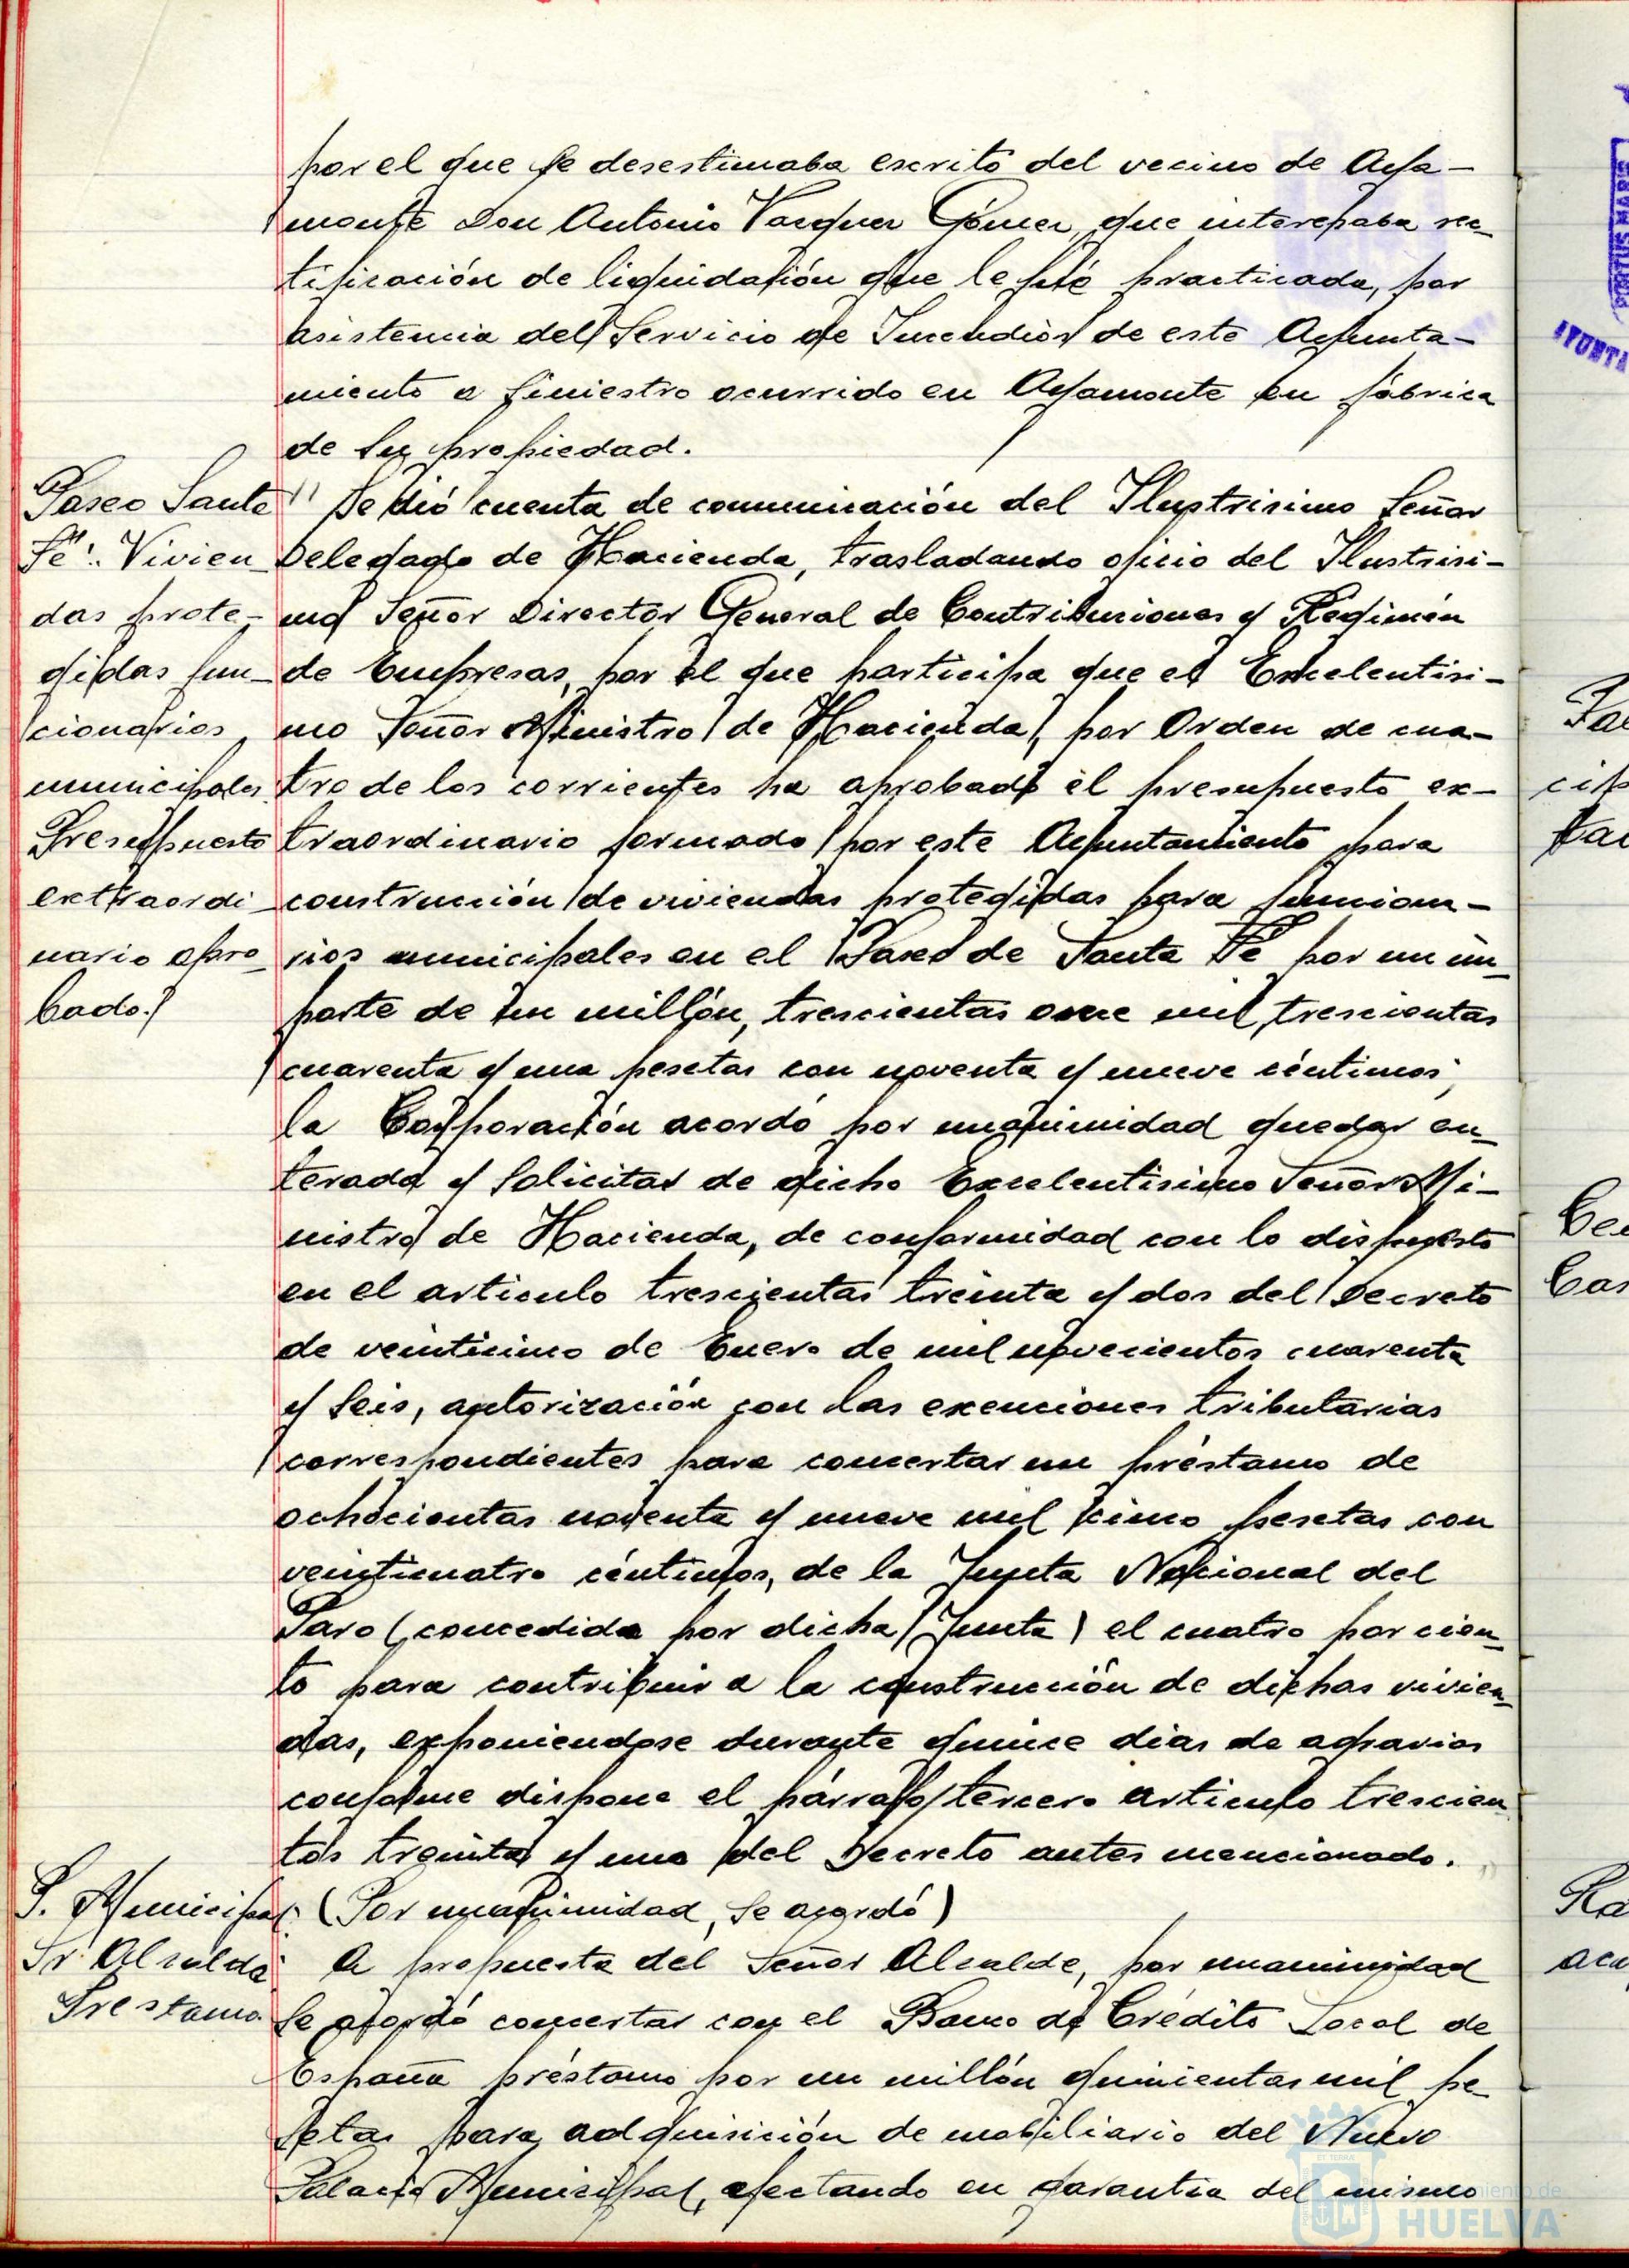 por el que se desestimaba escrito del vecino de Aya-
monte Don Antonio Vazquez Gómez, que interesaba rec-
tificación de liquidación que le fué practicada, por
asistencia del Servicio de Incendios de este Ayunta-
miento a siniestro ocurrido en Ayamonte en fábrica
de su propiedad.
Paseo Santa
Fé". Vivien-
das prote-
gidas fun-
cionarios
municipales
Presupuesto
extraordi-
nario apro-
bado.
" Se dió cuenta de comunicación del Ilustrisimo Señor
Delegado de Hacienda, trasladando oficio del Ilustrisi-
mo Señor Director General de Contribuciones y Regimén
de Empresas, por el que participa que el Excelentisi-
mo Señor Ministro de Hacienda, por Orden de cua-
tro de los corrientes ha aprobado el presupuesto ex-
traordinario formado por este Ayuntamiento para
construcción de viviendas protegidas para funciona-
rios municipales en el Paseo de Santa Fé por un im-
porte de un millón, trescientas once mil, trescientas
cuarenta y una pesetas con noventa y nueve céntimos;
la Corporación acordó por unanimidad quedar en-
terada y solicitar de dicho Excelentisimo Señor Mi-
nistro de Hacienda, de conformidad con lo dispuesto
en el articulo trescientas treinta y dos del Decreto
de veinticinco de Enero de mil novecientos cuarenta
y seis, autorización con las exenciones tributarias
correspondientes para concertar un préstamo de
ochocientas noventa y nueve mil cinco pesetas con
veinticuatro céntimos, de la Junta Nacional del
Paro (concedida por dicha Junta) el cuatro por cien-
to para contribuir a la construcción de dichas vivien-
das, exponiendose durante quince dias de agravios
conforme dispone el párrafo tercero articulo trescien
tos treinta y uno del Decreto antes mencionado.
P. Municipal.
Sr. Alcalde
Prestamo.
(Por unanimidad, se acordó)
A propuesta del Señor Alcalde, por unanimidad
se acordó concertar con el Banco de Crédito Local de
España préstamo por un millón quinientas mil pe-
setas para adquisición de mobiliario del Nuevo
Palacio Municipal, afectando en garantia del mismo
PORTUS MARIS
AYUNTA
Fac
cip
tac
Cas
Ra
acu
HUELVA